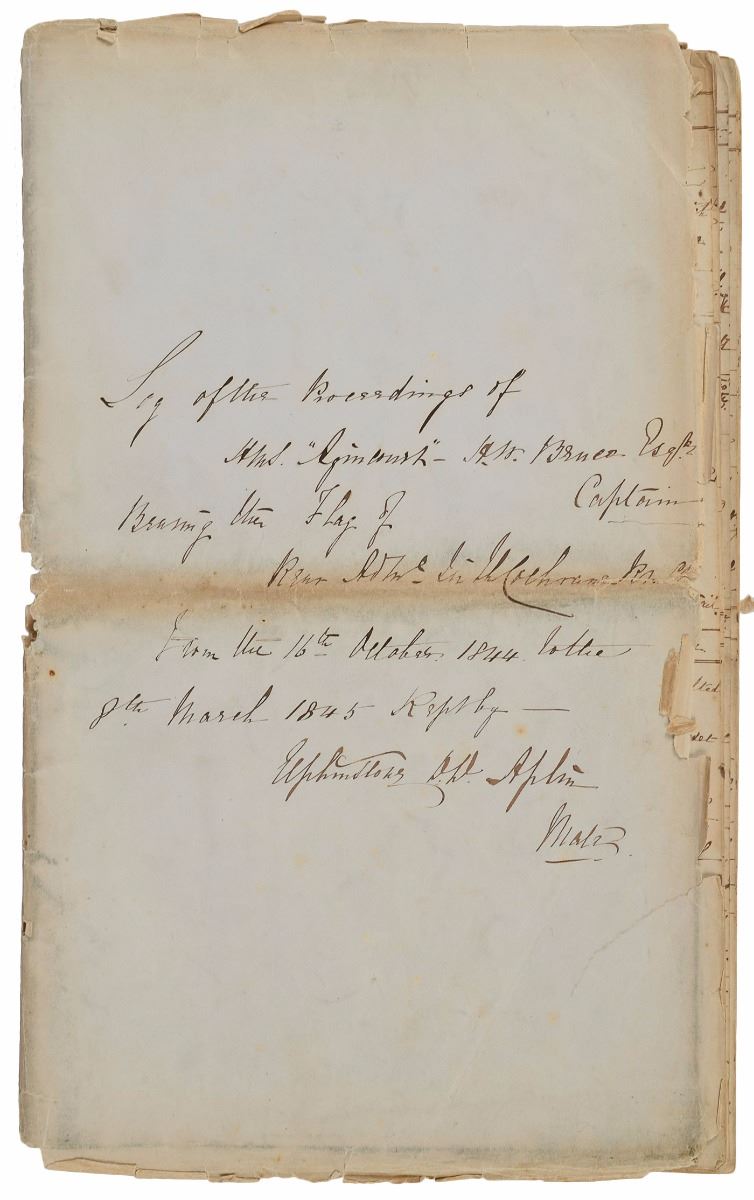 Log of the Proceedings of
HMS. "Agincourt" - H.W. Bruce Esqr.
Captain
Bearing the Flag of
Rear Adml. Sir Th Cochrane Kt. CB
From the 16th October 1844 to the
8th March 1845 Kept by —
Elphinstone D'O. D'A. Aplin
Mate